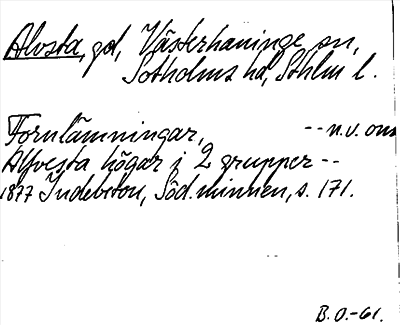 Alvsta, gd, Västerhaninge sn,
Sotholms hd, Sthlm l.
Fornlämningar, -- n.v. om
Alfvesta högar i 2 grupper --
1877 Indebetou, Söd. minnen, s. 171.
B.O.-61.